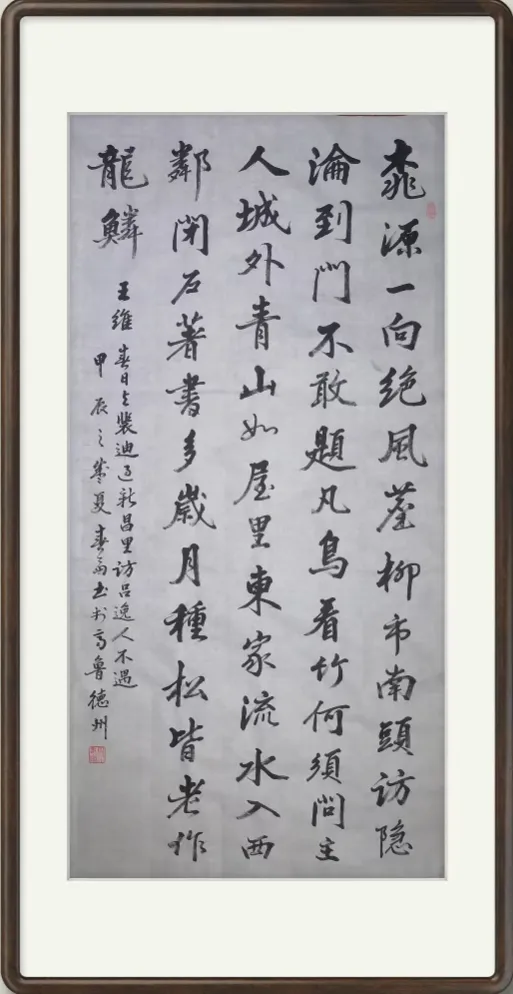 桃源一向绝風塵柳市南頭访隐
淪到門不敢題凡鳥看竹何須問主
人城外青山如屋里東家流水入西
鄰闭户著書多歲月種松皆老作
龍鱗
王維春日与裴迪过新昌里访吕逸人不遇
甲辰之葵夏春 书於齐鲁德州